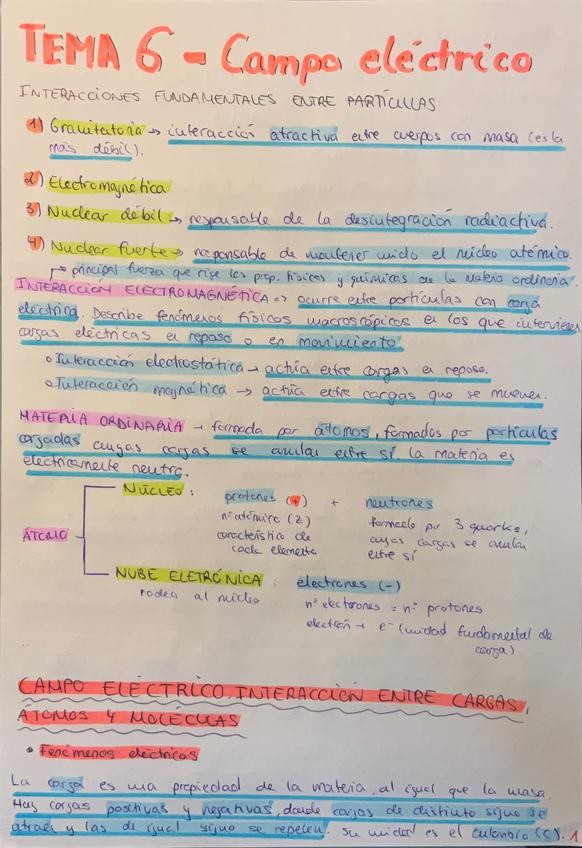 TEMA 6 - Campo eléctrico
INTERACCIONES FUNDAMENTALES ENTRE PARTÍCULAS
1) Gravitatoria → interacción atractiva entre cuerpos con masa (es la
más débil).
2) Electromagnética
3) Nuclear débil → responsable de la desintegración radiactiva.
4) Nuclear fuerte → responsable de mantener unido el núcleo atómico.
principal fuerza que rige las prop. físicas y químicas de la materia ordinaria.
INTERACCIÓN ELECTROMAGNÉTICA => ocurre entre partículas con carga
eléctrica. Describe fenómenos físicos macroscópicos en los que intervienen
cargas eléctricas en reposo o en movimiento.
o Interacción electrostática → actúa entre cargas en reposo.
o Interacción magnética → actúa entre cargas que se mueven.
MATERIA ORDINARIA → formada por átomos, formados por partículas
cargadas cuyas cargas se anulan entre sí. La materia es
eléctricamente neutra.
ÁTOMO
NÚCLEO:
protones (+) + neutrones
nº atómico (Z)
característico de
cada elemento
formado por 3 quarks,
cuyas cargas se anulan
entre sí
NUBE ELETRÓNICA
rodea al núcleo
electrones (-)
nº electrones = nº protones
electrón → e⁻ (unidad fundamental de
carga)
CAMPO ELÉCTRICO. INTERACCIÓN ENTRE CARGAS,
ÁTOMOS Y MOLÉCULAS
• Fenómenos eléctricos
La carga es una propiedad de la materia, al igual que la masa.
Hay cargas positivas y negativas, donde cargas de distinto signo se
atraen y las de igual signo se repelen. Su unidad es el culombio (C). 1